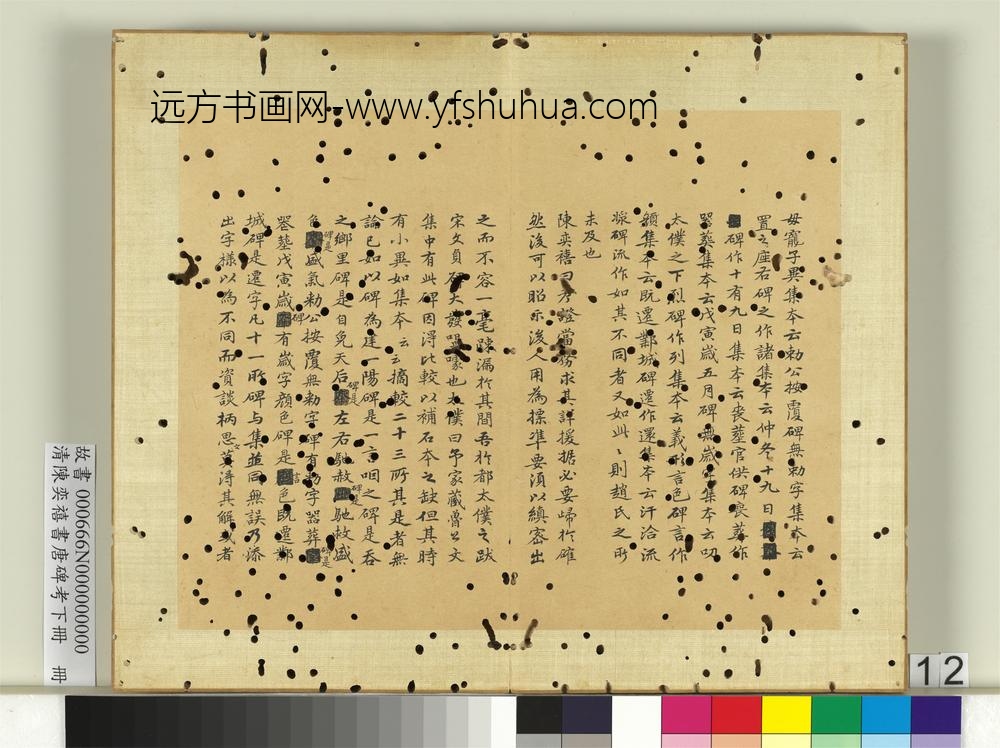 远方书画网-www.yfshuhua.com
毋寵子異集本云勅公按覆碑無勅字集本云
置之座右碑之作諸集本云仲冬十九日
碑作十有九日集本云喪葬官供碑喪葬作
器葬集本云戊寅歲五月碑無歲字集本云叨
太僕之下烈碑作列集本云義形言色碑言作
顏集本云既還鄴城碑還作還集本云汗洽流
漿碑流作如其不同者又如此則趙氏之所
未及也
陳奕禧曰考證當務求其詳援據必要歸於確
然後可以昭示後人用為標準要須以縝密出
之而不容一毫疎漏於其間吾於都太僕之跋
宋文貞碑大發噱也太僕曰予家藏魯公文
集中有此碑因得比較以補石本之缺但其時
有小異如集本云云摘較二十三所其是者無
論已如以碑為逮一陽碑是一言咽之碑是吞
之鄉里碑是自免天后左右馳赦碑是馳赦盛
色碑是盛氣勅公按覆無勅字碑有勅字器葬碑是
器塟戊寅歲碑有歲字顏色碑是言色既還鄴
城碑是還字凡十一所碑与集並同無誤乃添
出字様以為不同而資談柄思莫得其解或者
故書000666N000000000
清陳奕禧書唐碑考下冊 冊
12